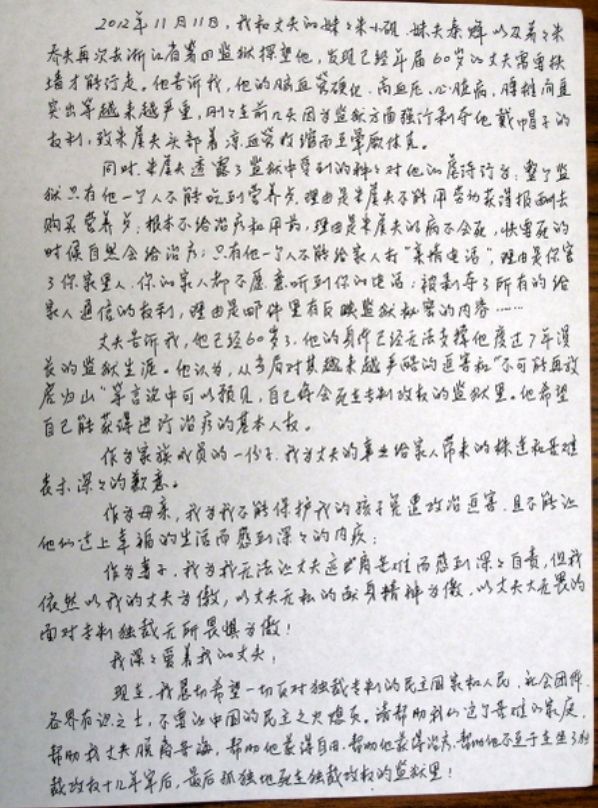 2012年11月11日，我和丈夫的妹々朱小砚、妹夫秦辉以及弟々朱
乔夫再次去浙江省第四监狱探望他，发现已经年届60岁的丈夫需要扶
墙才能行走。他告诉我，他的脑血管硬化、高血压、心脏病、腰椎间盘
突出等越来越严重，刚々在前几天因为监狱方面强行剥夺他戴帽子的
权利，致朱虞夫头部着凉血管收缩而至晕厥休克。
同时，朱虞夫透露了监狱中受到的种々对他的虐待行为：整个监
狱只有他一个人不能吃到营养点，理由是朱虞夫不能用劳动获得报酬去
购买营养点；根本不给治疗和用药，理由是朱虞夫的病不会死，快要死的
时候自然会给治疗；只有他一个人不能给家人打“亲情电话”，理由是你害
了你家里人，你的家人都不愿意听到你的电话；被剥夺了所有的给
家人通信的权利，理由是邮件里有反映监狱秘密的内容……
丈夫告诉我，他已经60岁了，他的身体已经无法支撑他度过7年漫
长的监狱生涯。他认为，从当局对其越来越严酷的迫害和“不可能再放
虎归山”等言论中可以预见，自己将会死在专制政权的监狱里。他希望
自己能获得进行治疗的基本人权。
作为家族成员的一份子，我为丈夫的事业给家人带来的株连和苦难
表示深々的歉意。
作为母亲，我为我不能保护我的孩子免遭政治迫害，且不能让
他们过上幸福的生活而感到深々的内疚；
作为妻子，我为我无法让丈夫远离苦难而感到深々自责，但我
依然以我的丈夫为傲，以丈夫无私的献身精神为傲，以丈夫大无畏的
面对专制独裁无所畏惧为傲！
我深々爱着我的丈夫；
现在，我恳切希望一切反对独裁专制的民主国家和人民、社会团体、
各界有识之士，不要让中国的民主之火熄灭。请帮助我们这个苦难的家庭，
帮助我丈夫脱离苦海，帮助他获得自由，帮助他获得治疗，帮助他不至于在坐了独
裁政权十几年牢后，最后孤独地死在独裁政权的监狱里！